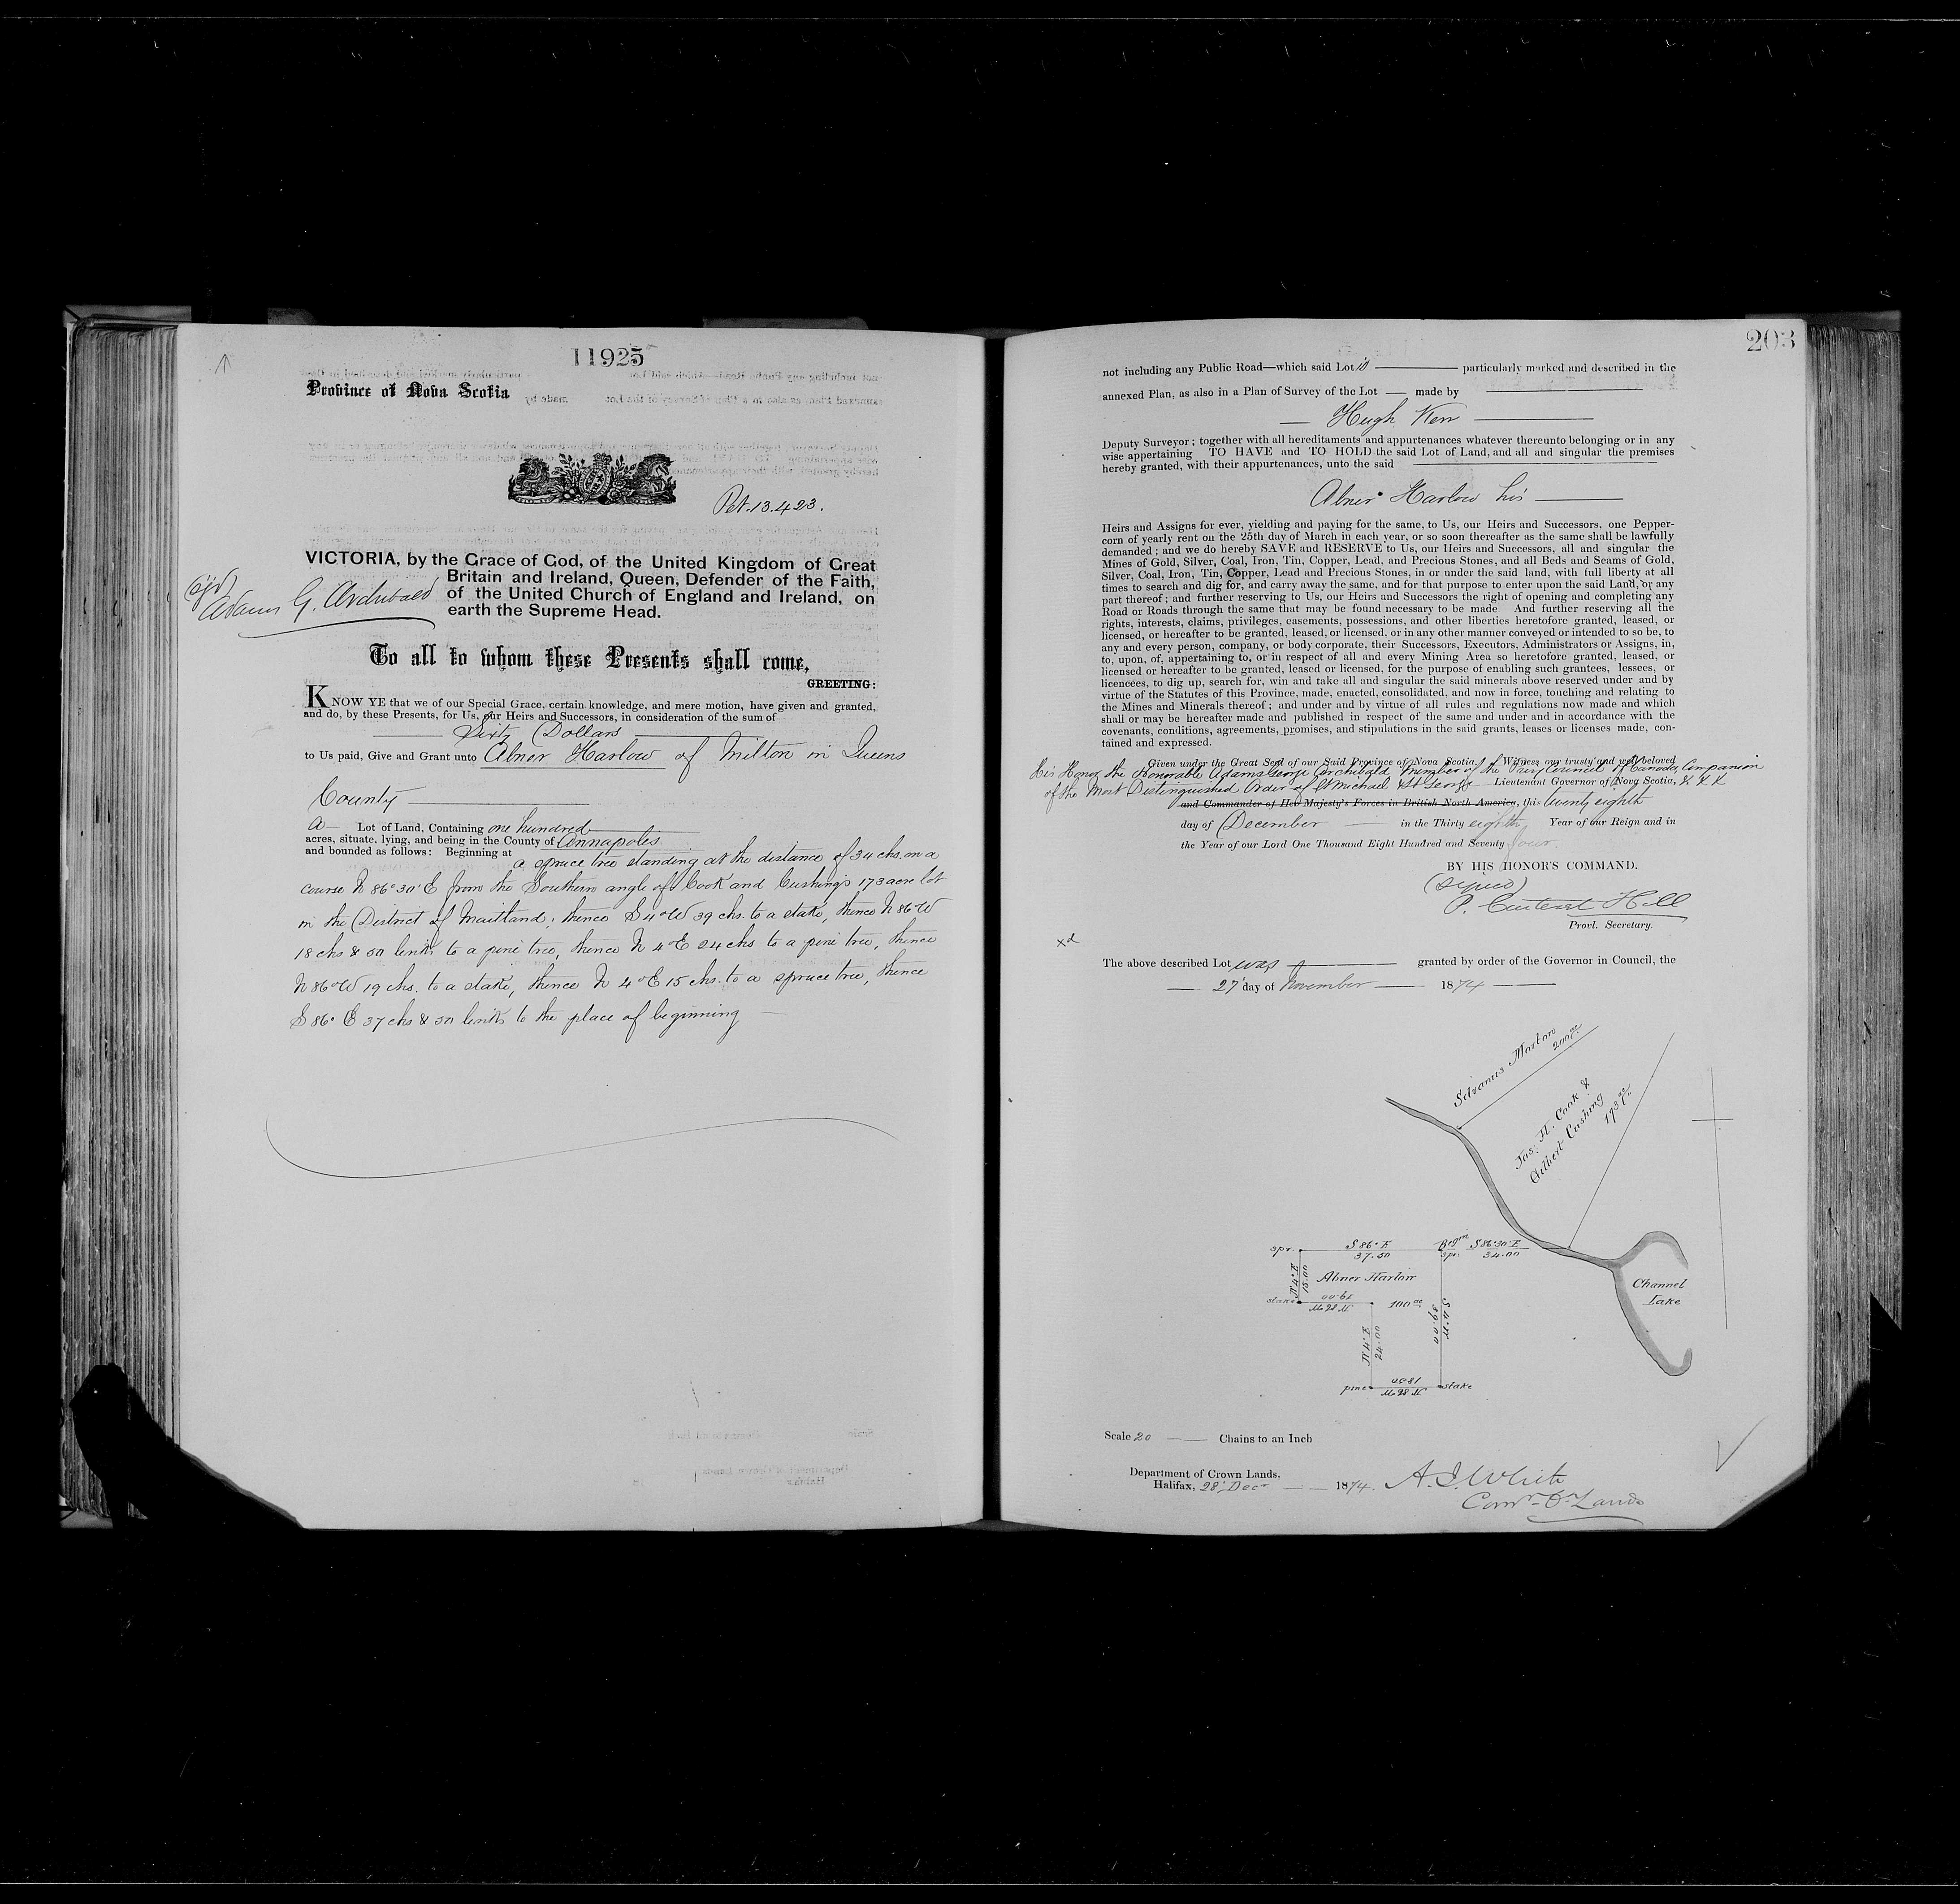 11925
Province of Nova Scotia
Pet. 13.423.
VICTORIA, by the Grace of God, of the United Kingdom of Great
Britain and Ireland, Queen, Defender of the Faith,
of the United Church of England and Ireland, on
earth the Supreme Head.
(sgd)
Adams G. Archibald
To all to whom these Presents shall come,
GREETING:
KNOW YE that we of our Special Grace, certain knowledge, and mere motion, have given and granted,
and do, by these Presents, for Us, our Heirs and Successors, in consideration of the sum of
Sixty Dollars
to Us paid, Give and Grant unto Abner Harlow of Milton in Queens
County
a Lot of Land, Containing one hundred
acres, situate, lying, and being in the County of Annapolis
and bounded as follows: Beginning at a spruce tree standing at the distance of 34 chs. on a
course N 86° 30' E from the Southern angle of Cook and Cushing's 173 acre lot
in the District of Maitland; thence S 4° W 39 chs. to a stake, thence N 86° W
18 chs & 50 links to a pine tree, thence N 4° E 24 chs to a pine tree, thence
N 86° W 19 chs. to a stake, thence N 4° E 15 chs. to a spruce tree, thence
S 86° E 37 chs & 50 links to the place of beginning
203
not including any Public Road—which said Lot is particularly marked and described in the
annexed Plan, as also in a Plan of Survey of the Lot — made by
Hugh Kerr
Deputy Surveyor; together with all hereditaments and appurtenances whatever thereunto belonging or in any
wise appertaining TO HAVE and TO HOLD the said Lot of Land, and all and singular the premises
hereby granted, with their appurtenances, unto the said
Abner Harlow his
Heirs and Assigns for ever, yielding and paying for the same, to Us, our Heirs and Successors, one Pepper-
corn of yearly rent on the 25th day of March in each year, or so soon thereafter as the same shall be lawfully
demanded; and we do hereby SAVE and RESERVE to Us, our Heirs and Successors, all and singular the
Mines of Gold, Silver, Coal, Iron, Tin, Copper, Lead, and Precious Stones, and all Beds and Seams of Gold,
Silver, Coal, Iron, Tin, Copper, Lead and Precious Stones, in or under the said land, with full liberty at all
times to search and dig for, and carry away the same, and for that purpose to enter upon the said Land, or any
part thereof; and further reserving to Us, our Heirs and Successors the right of opening and completing any
Road or Roads through the same that may be found necessary to be made And further reserving all the
rights, interests, claims, privileges, easements, possessions, and other liberties heretofore granted, leased, or
licensed, or hereafter to be granted, leased, or licensed, or in any other manner conveyed or intended to so be, to
any and every person, company, or body corporate, their Successors, Executors, Administrators or Assigns, in,
to, upon, of, appertaining to, or in respect of all and every Mining Area so heretofore granted, leased, or
licensed or hereafter to be granted, leased or licensed, for the purpose of enabling such grantees, lessees, or
licencees, to dig up, search for, win and take all and singular the said minerals above reserved under and by
virtue of the Statutes of this Province, made, enacted, consolidated, and now in force, touching and relating to
the Mines and Minerals thereof; and under and by virtue of all rules and regulations now made and which
shall or may be hereafter made and published in respect of the same and under and in accordance with the
covenants, conditions, agreements, promises, and stipulations in the said grants, leases or licenses made, con-
tained and expressed.
Given under the Great Seal of our Said Province of Nova Scotia. Witness our trusty and well beloved
His Honor the Honorable Adams George Archibald Member of the Privy Council of Canada, Companion
of the Most Distinguished Order of St Michael & St George Lieutenant Governor of Nova Scotia, & & &
and Commander of Her Majesty's Forces in British North America, this twenty eighth
day of December in the Thirty eighth Year of our Reign and in
the Year of our Lord One Thousand Eight Hundred and Seventy four
BY HIS HONOR'S COMMAND.
(Signed)
P. Carteret Hill
Provl. Secretary.
xd
The above described Lot was granted by order of the Governor in Council, the
27' day of November 1874
Silvanus Morton
200 ac
Jas. H. Cook &
Gilbert Cushing
173 ac
spr. S 86° E Begin S 86° 30' E
37.50 spr. 34.00
N 4° E
15.00
Abner Harlow
Channel
Lake
stake 19.00
N 86 W
100 ac
S 4 W
39.00
N 4° E
24.00
pine 18.50 stake
N 86 W
Scale 20 Chains to an Inch
Department of Crown Lands,
Halifax, 28' Decr 1874. A. J. White
Comr. Cn. Lands